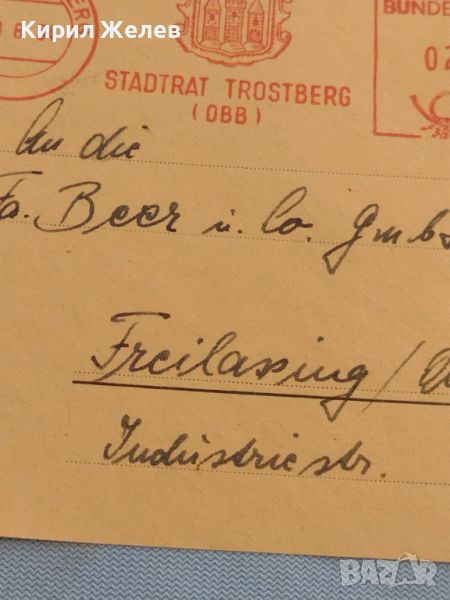 Кирил Желев
BUNDE
02
STADTRAT TROSTBERG
(OBB)
An die
Fa. Beer u. Co. Gmb
Freilassing /
Industriestr.
BAZAR.BG